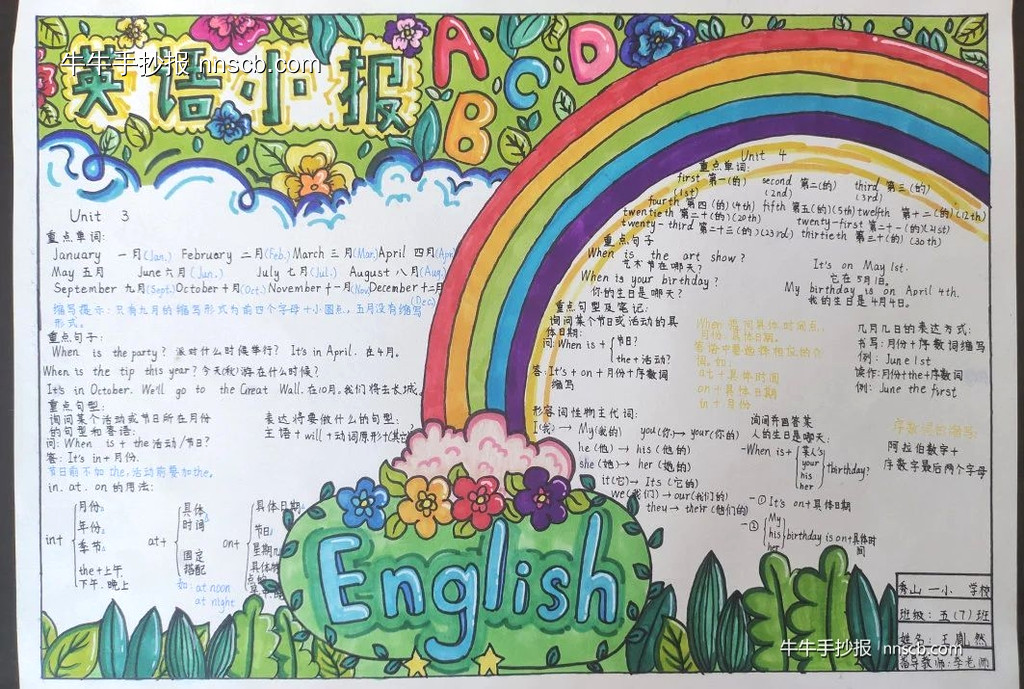 英语小报
牛牛手抄报 nnscb.com
A
B
C
D
Unit 3
重点单词:
January 一月(Jan.) February 二月(Feb.) March 三月(Mar.) April 四月(Apr
May 五月 June 六月(Jun.) July 七月(Jul.) August 八月(Aug.)
September 九月(Sept.) October 十月(Oct.) November 十一月(Nov December 十二月
(Dec)
缩写提示:只有九月的缩写形式为前四个字母+小圆点,五月没有缩写
形式。
重点句子:
When is the party? 派对什么时候举行? It's in April. 在4月。
When is the tip this year? 今天(秋)游在什么时候?
It's in October. We'll go to the Great Wall. 在10月,我们将去长城
重点句型:
询问某个活动或节日所在月份
的句型和答语:
问: When is + the 活动/节日?
答: It's in + 月份.
节日前不加 the, 活动前要加 the。
表达将要做什么的句型:
主语+will+动词原形+(其它
in. at. on 的用法:
in+
月份
年份
季节
the+上午
下午. 晚上
at+
具体
时词
固定
搭配
如: at noon
at night
on+
具体日期
节日
星期
具体
Unit 4
重点单词:
first 第一(的) second 第二(的) third 第三(的)
(1st) (2nd) (3rd)
fourth 第四(的)(4th) fifth 第五(的)(5th) twelfth 第十二(的)(12th)
twentieth 第二十(的)(20th) twenty-first 第二十一(的)(21st)
twenty-third 第二十三(的)(23rd) thirtieth 第三十(的)(30th)
重点句子
When is the art show?
艺术节在哪天?
It's on May 1st.
它在5月1日。
When is your birthday?
你的生日是哪天?
My birthday is on April 4th.
我的生日是4月4日。
重点句型及笔记:
询问某个节日或活动的具
体日期:
问: When is + 节日?
the + 活动?
答: It's + on + 月份+序数词
缩写
When 询问具体时间点,
月份. 具体日期。
at + 具体时间
on + 具体日期
in + 月份
几月几日的表达方式:
书写: 月份+序数词缩写
例: June 1st
读作: 月份+the+序数词
例: June the first
序数词的缩写:
阿拉伯数字+
序数字最后两个字母
形容词性物主代词:
I(我)→ My(我的) you(你)→ your(你的)
he (他)→ his (他的)
she(她)→ her (她的)
it(它)→ Its (它的)
we(我们)→ our(我们的)
they → their (他们的)
询问并回答某
人的生日是哪天:
-When is+ 某人's
your
his
her
birthday?
-① It's on+具体日期
-② My
his
her
birthday is on+具体时
间
English
秀山一小 学校
班级: 五(7)班
姓名: 王胤然
指导教师: 李老师
牛牛手抄报 nnscb.com